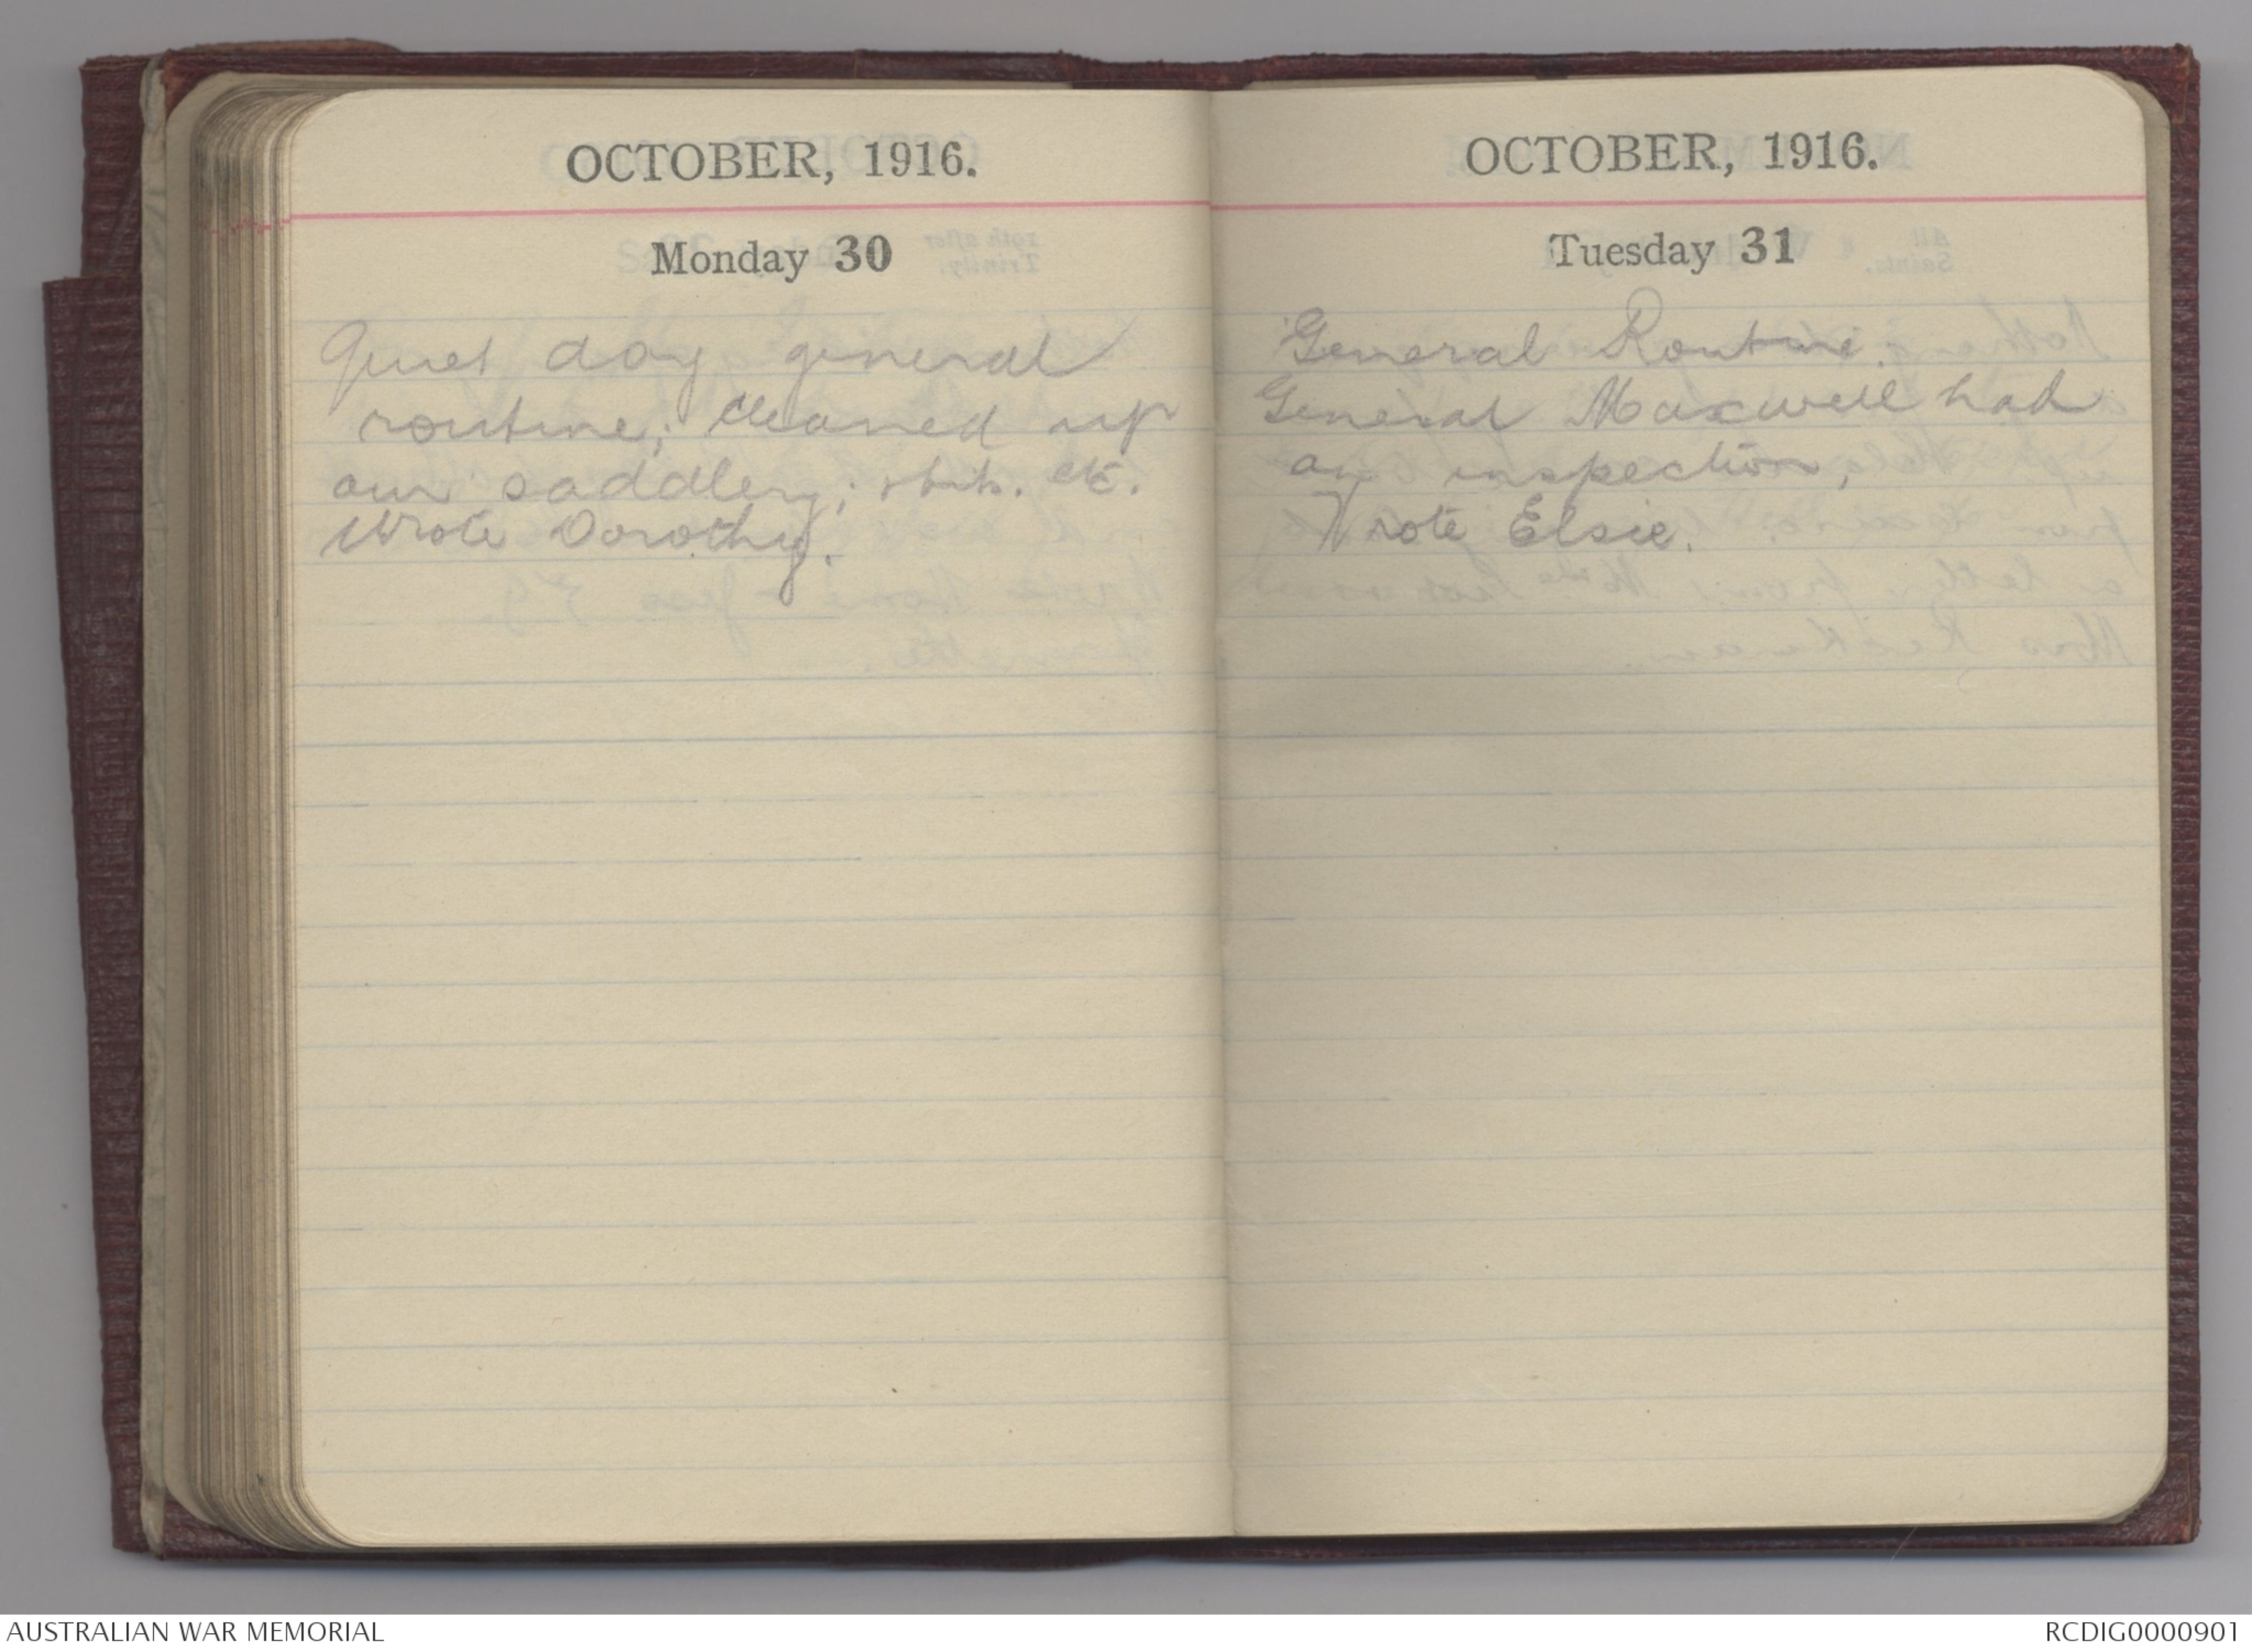 OCTOBER, 1916.
Monday 30
Quiet day general
routine; cleaned up
our saddlery; etc.
Wrote Dorothy.
OCTOBER, 1916.
Tuesday 31
General Routine.
General Maxwell had
an inspection,
Wrote Elsie.
AUSTRALIAN WAR MEMORIAL
RCDIG0000901